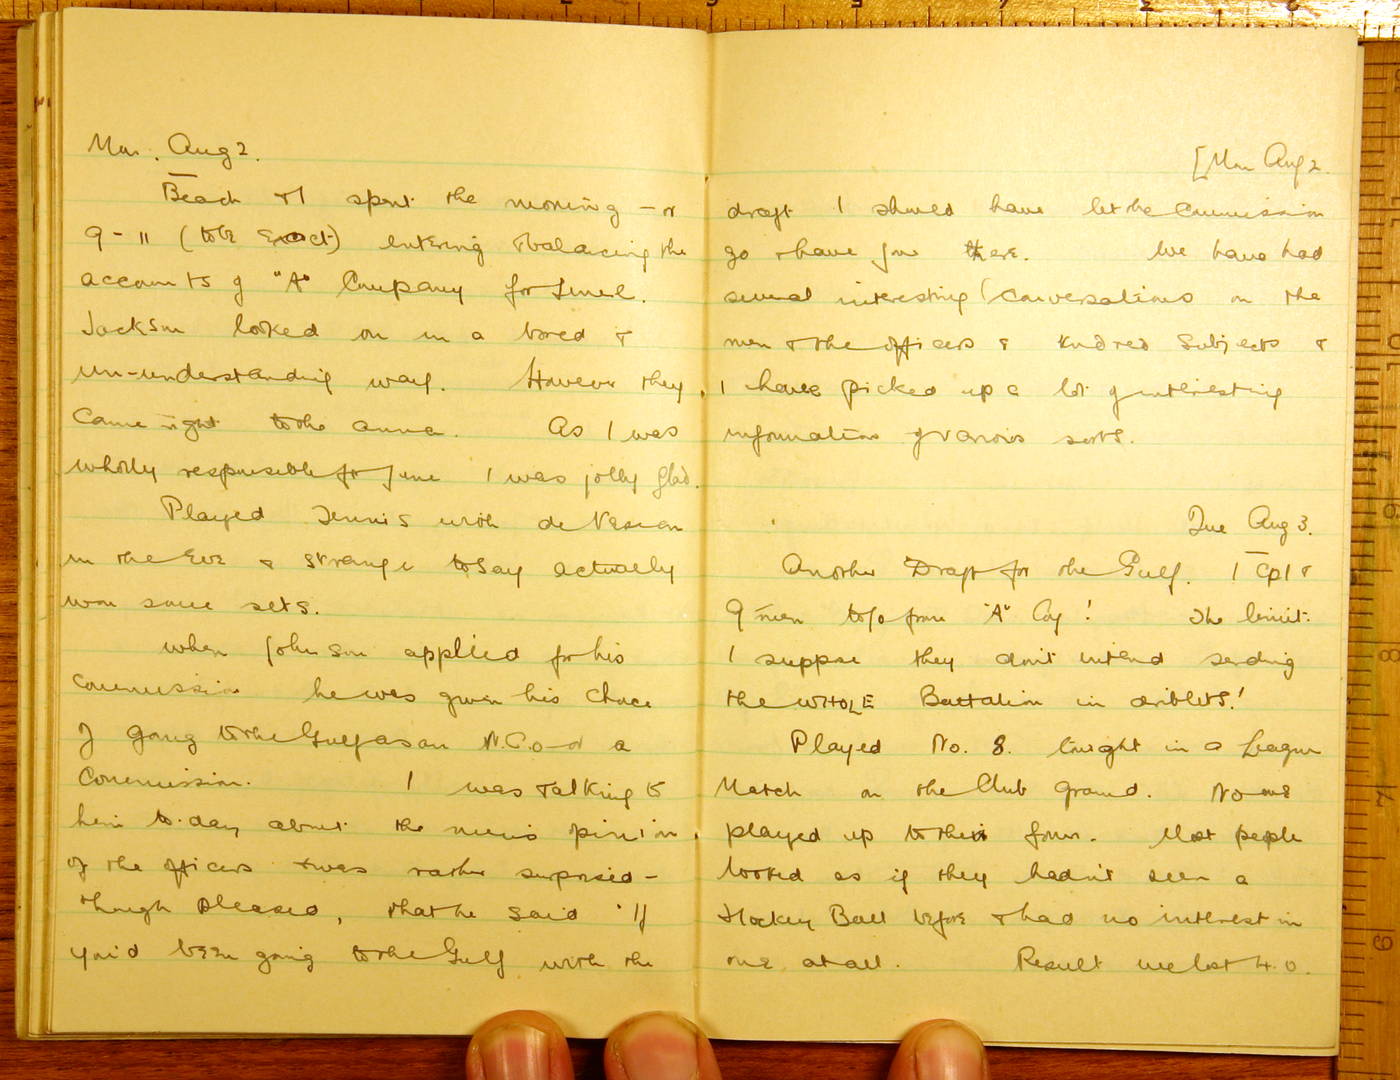 Mon. Aug 2.
Beach & I spent the morning – or
9 - 11 (to be exact) entering & balancing the
accounts of "A" Company for June.
Jackson looked on in a bored &
un-understanding way. However they
came right to the anna. As I was
wholly responsible for June I was jolly glad.
Played Tennis with de
in the Eve & strange to say actually
won some sets.
When Johnson applied for his
commission he was given his choice
of going to the Gulf as an N.C.O – or a
Commission. I was talking to
him to-day about the men's opinion
of the officers & was rather surprised –
though pleased, that he said 'If
you'd been going to the Gulf with the
[Mon Aug 2.
draft I should have let the commission
go & have gone there. We have had
several interesting conversations on the
men & the officers & kindred subjects &
I have picked up a lot of interesting
information of various sorts.
Tue Aug 3.
Another Draft for the Gulf. 1 Cpl &
9 men to go from "A" Coy! The limit.
I suppose they don't intend sending
the WHOLE Battalion in driblets!
Played No. 8. tonight in a League
Match on the Club ground. No one
played up to their form. Most people
looked as if they hadn't seen a
Hockey Ball before & had no interest in
one at all. Result we lost 4.0.